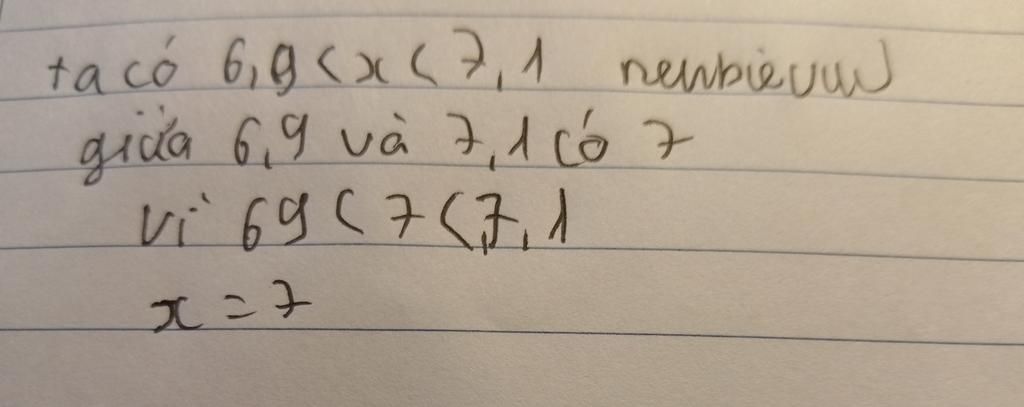 ta có 6,9 < x < 7,1 newbievuw
giữa 6,9 và 7,1 có 7
vì 69 < 7 < 7,1
x = 7